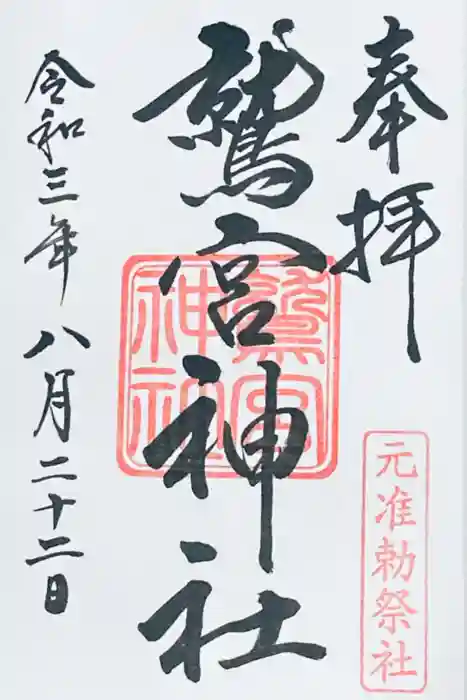 奉拝
元准勅祭社
鷲宮神社
鷲宮神社
令和三年八月二十二日